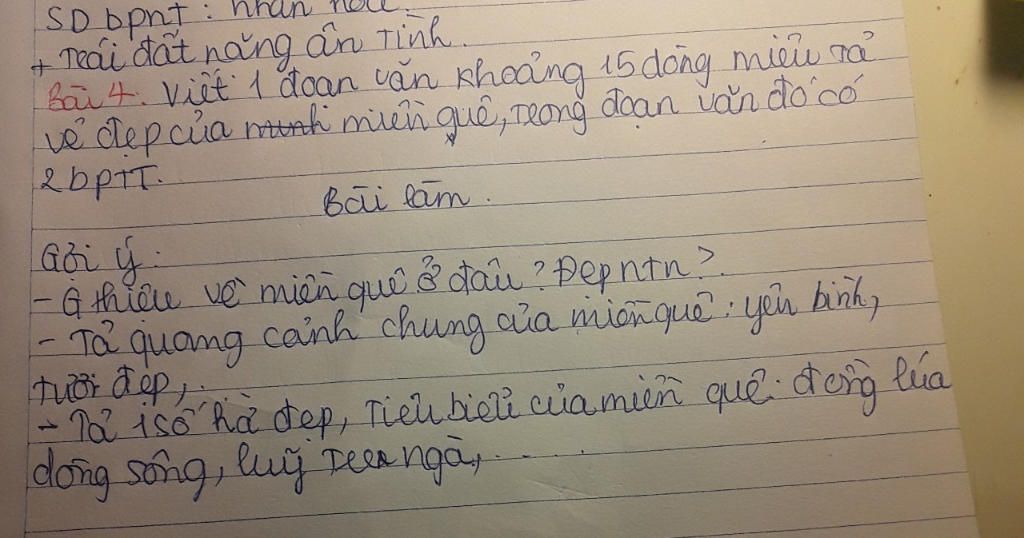 SD bpnt: nhân hoá.
+ Trái đất nặng ân tình.
Bài 4. Viết 1 đoạn văn khoảng 15 dòng miêu tả
vẻ đẹp của miền quê, trong đoạn văn đó có
2 bpTT.
Bài làm.
Gợi ý:
- G thiệu về miền quê ở đâu? Đẹp ntn?
- Tả quang cảnh chung của miền quê: yên bình,
tươi đẹp,..
- Tả 1 số h/ả đẹp, tiêu biểu của miền quê: đồng lúa
dòng sông, luỹ tre ngà, ......